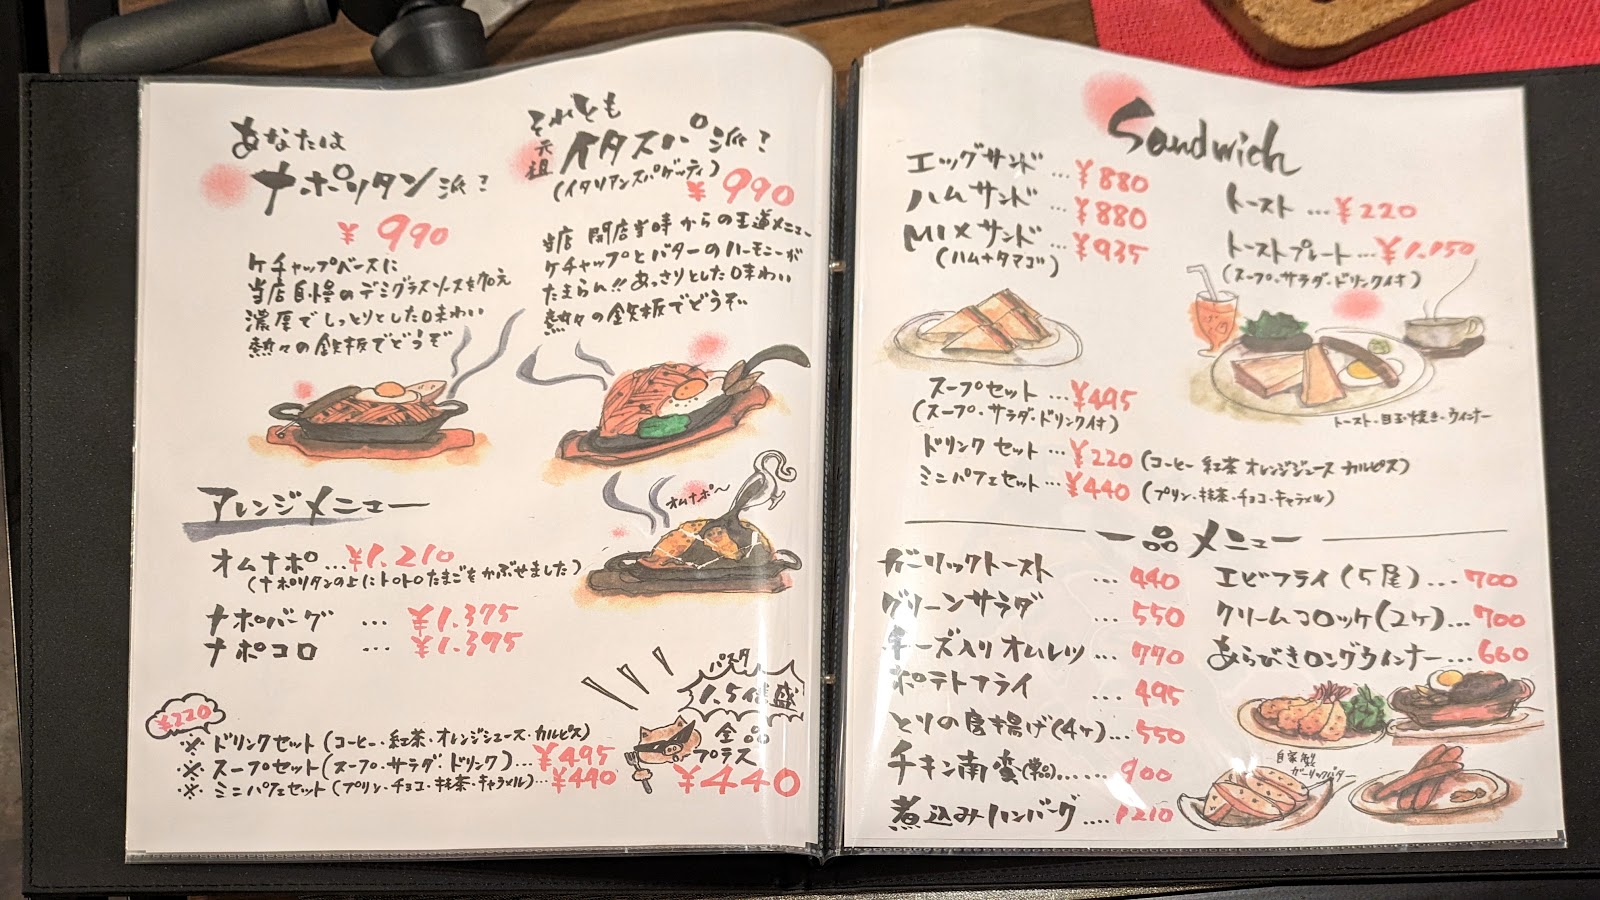 あなたは
ナポリタン派?
¥990
ケチャップベースに
当店自慢のデミグラスソースを加え
濃厚でしっとりとした味わい
熱々の鉄板でどうぞ
それとも
元祖 イタスパ派?
(イタリアンスパゲッティ)
¥990
当店 開店当時からの王道メニュー
ケチャップとバターのハーモニーが
たまらん!!あっさりとした味わい
熱々の鉄板でどうぞ
アレンジメニュー
オムナポ~
オムナポ...¥1.210
(ナポリタンの上にトロトロたまごをかぶせました)
ナポバーグ ... ¥1.375
ナポコロ ... ¥1.375
パスタ
1.5倍盛
全品
プラス
¥440
¥220
※ ドリンクセット(コーヒー・紅茶・オレンジジュース・カルピス)
※ スープセット(スープ・サラダ・ドリンク)...¥495
※ ミニパフェセット(プリン・チョコ・抹茶・キャラメル)...¥440
Sandwich
エッグサンド...¥880
ハムサンド...¥880
MIXサンド...¥935
(ハム+タマゴ)
トースト...¥220
トーストプレート...¥1.150
(スープ・サラダ・ドリンク付)
トースト・目玉焼き・ウインナー
スープセット...¥495
(スープ・サラダ・ドリンク付)
ドリンクセット...¥220(コーヒー 紅茶 オレンジジュース カルピス)
ミニパフェセット...¥440(プリン・抹茶・チョコ・キャラメル)
一品メニュー
ガーリックトースト ...440
グリーンサラダ ...550
チーズ入りオムレツ...770
ポテトフライ ...495
とりの唐揚げ(4ヶ)...550
チキン南蛮(単品)......900
煮込みハンバーグ....1210
エビフライ(5尾)...700
クリームコロッケ(2ヶ)...700
あらびきロングウインナー...660
自家製
ガーリックバター